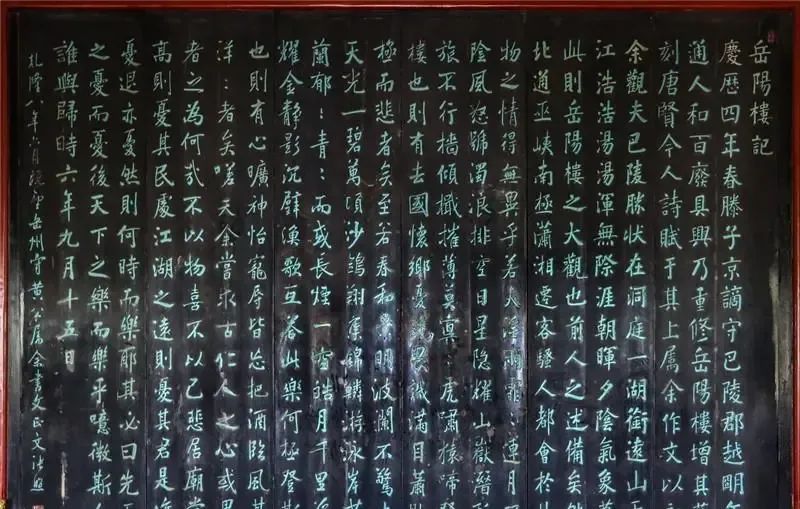 岳陽樓記
慶歷四年春滕子京謫守巴陵郡越明年
通人和百廢具興乃重修岳陽樓增其舊
刻唐賢今人詩賦于其上屬余作文以
余觀夫巴陵勝狀在洞庭一湖銜遠山
江浩浩湯湯渾無際涯朝暉夕陰氣象萬
此則岳陽樓之大觀也前人之述備矣然
北通巫峽南極瀟湘遷客騷人都會於
物之情得無異乎若夫霪雨霏〻連月
陰風怒號濁浪排空日星隱耀山嶽潛形
旅不行檣傾楫摧薄莫冥〻虎嘯猿啼登
樓也則有去國懷鄉憂讒畏譏滿目蕭
極而悲者矣至若春和景明波瀾不驚上
天光一碧萬頃沙鷗翔集錦鱗游泳岸芷
蘭郁〻青〻而或長煙一空皓月千里浮
耀金靜影沉璧漁歌互答此樂何極登斯
也則有心曠神怡寵辱皆忘把酒臨風其
洋〻者矣嗟夫余嘗求古仁人之心或異
者之為何哉不以物喜不以己悲居廟堂
高則憂其民處江湖之遠則憂其君是進
憂退亦憂然則何時而樂耶其必曰先
之憂而憂後天下之樂而樂乎噫微斯人
誰與歸時六年九月十五日
乾隆八年六月岳州守黃屬余書文正文張照